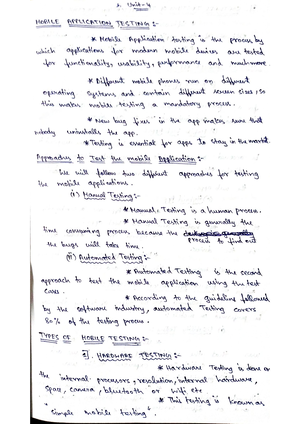 Unit-4
MOBILE APPLICATION TESTING :-
* Mobile Application testing is the process by
which applications for modern mobile devices are tested
for functionality, usability, performance and much more.
* Different mobile phones run on different
operating systems and contain different screen sizes, so
this makes mobile testing a mandatory process.
* New bug fixes in the app makes sure that
nobody uninstalls the app.
* Testing is essential for apps to stay in the market.
Approaches to Test the mobile Application :-
We will follow two different approaches for testing
the mobile applications.
(i) Manual Testing :-
* Manual Testing is a human process.
* Manual Testing is generally the
time consuming process because the process to find out
the bugs will take time.
(ii) Automated Testing :-
* Automated Testing is the second
approach to test the mobile application using the test
cases.
* According to the guideline followed
by the software industry, automated Testing covers
80% of the testing process.
TYPES OF MOBILE TESTING :-
1. HARDWARE TESTING :-
* Hardware Testing is done on
the internal processors, resolution, internal hardware,
space, camera, bluetooth or wifi etc
* This testing is known as
"simple mobile testing"